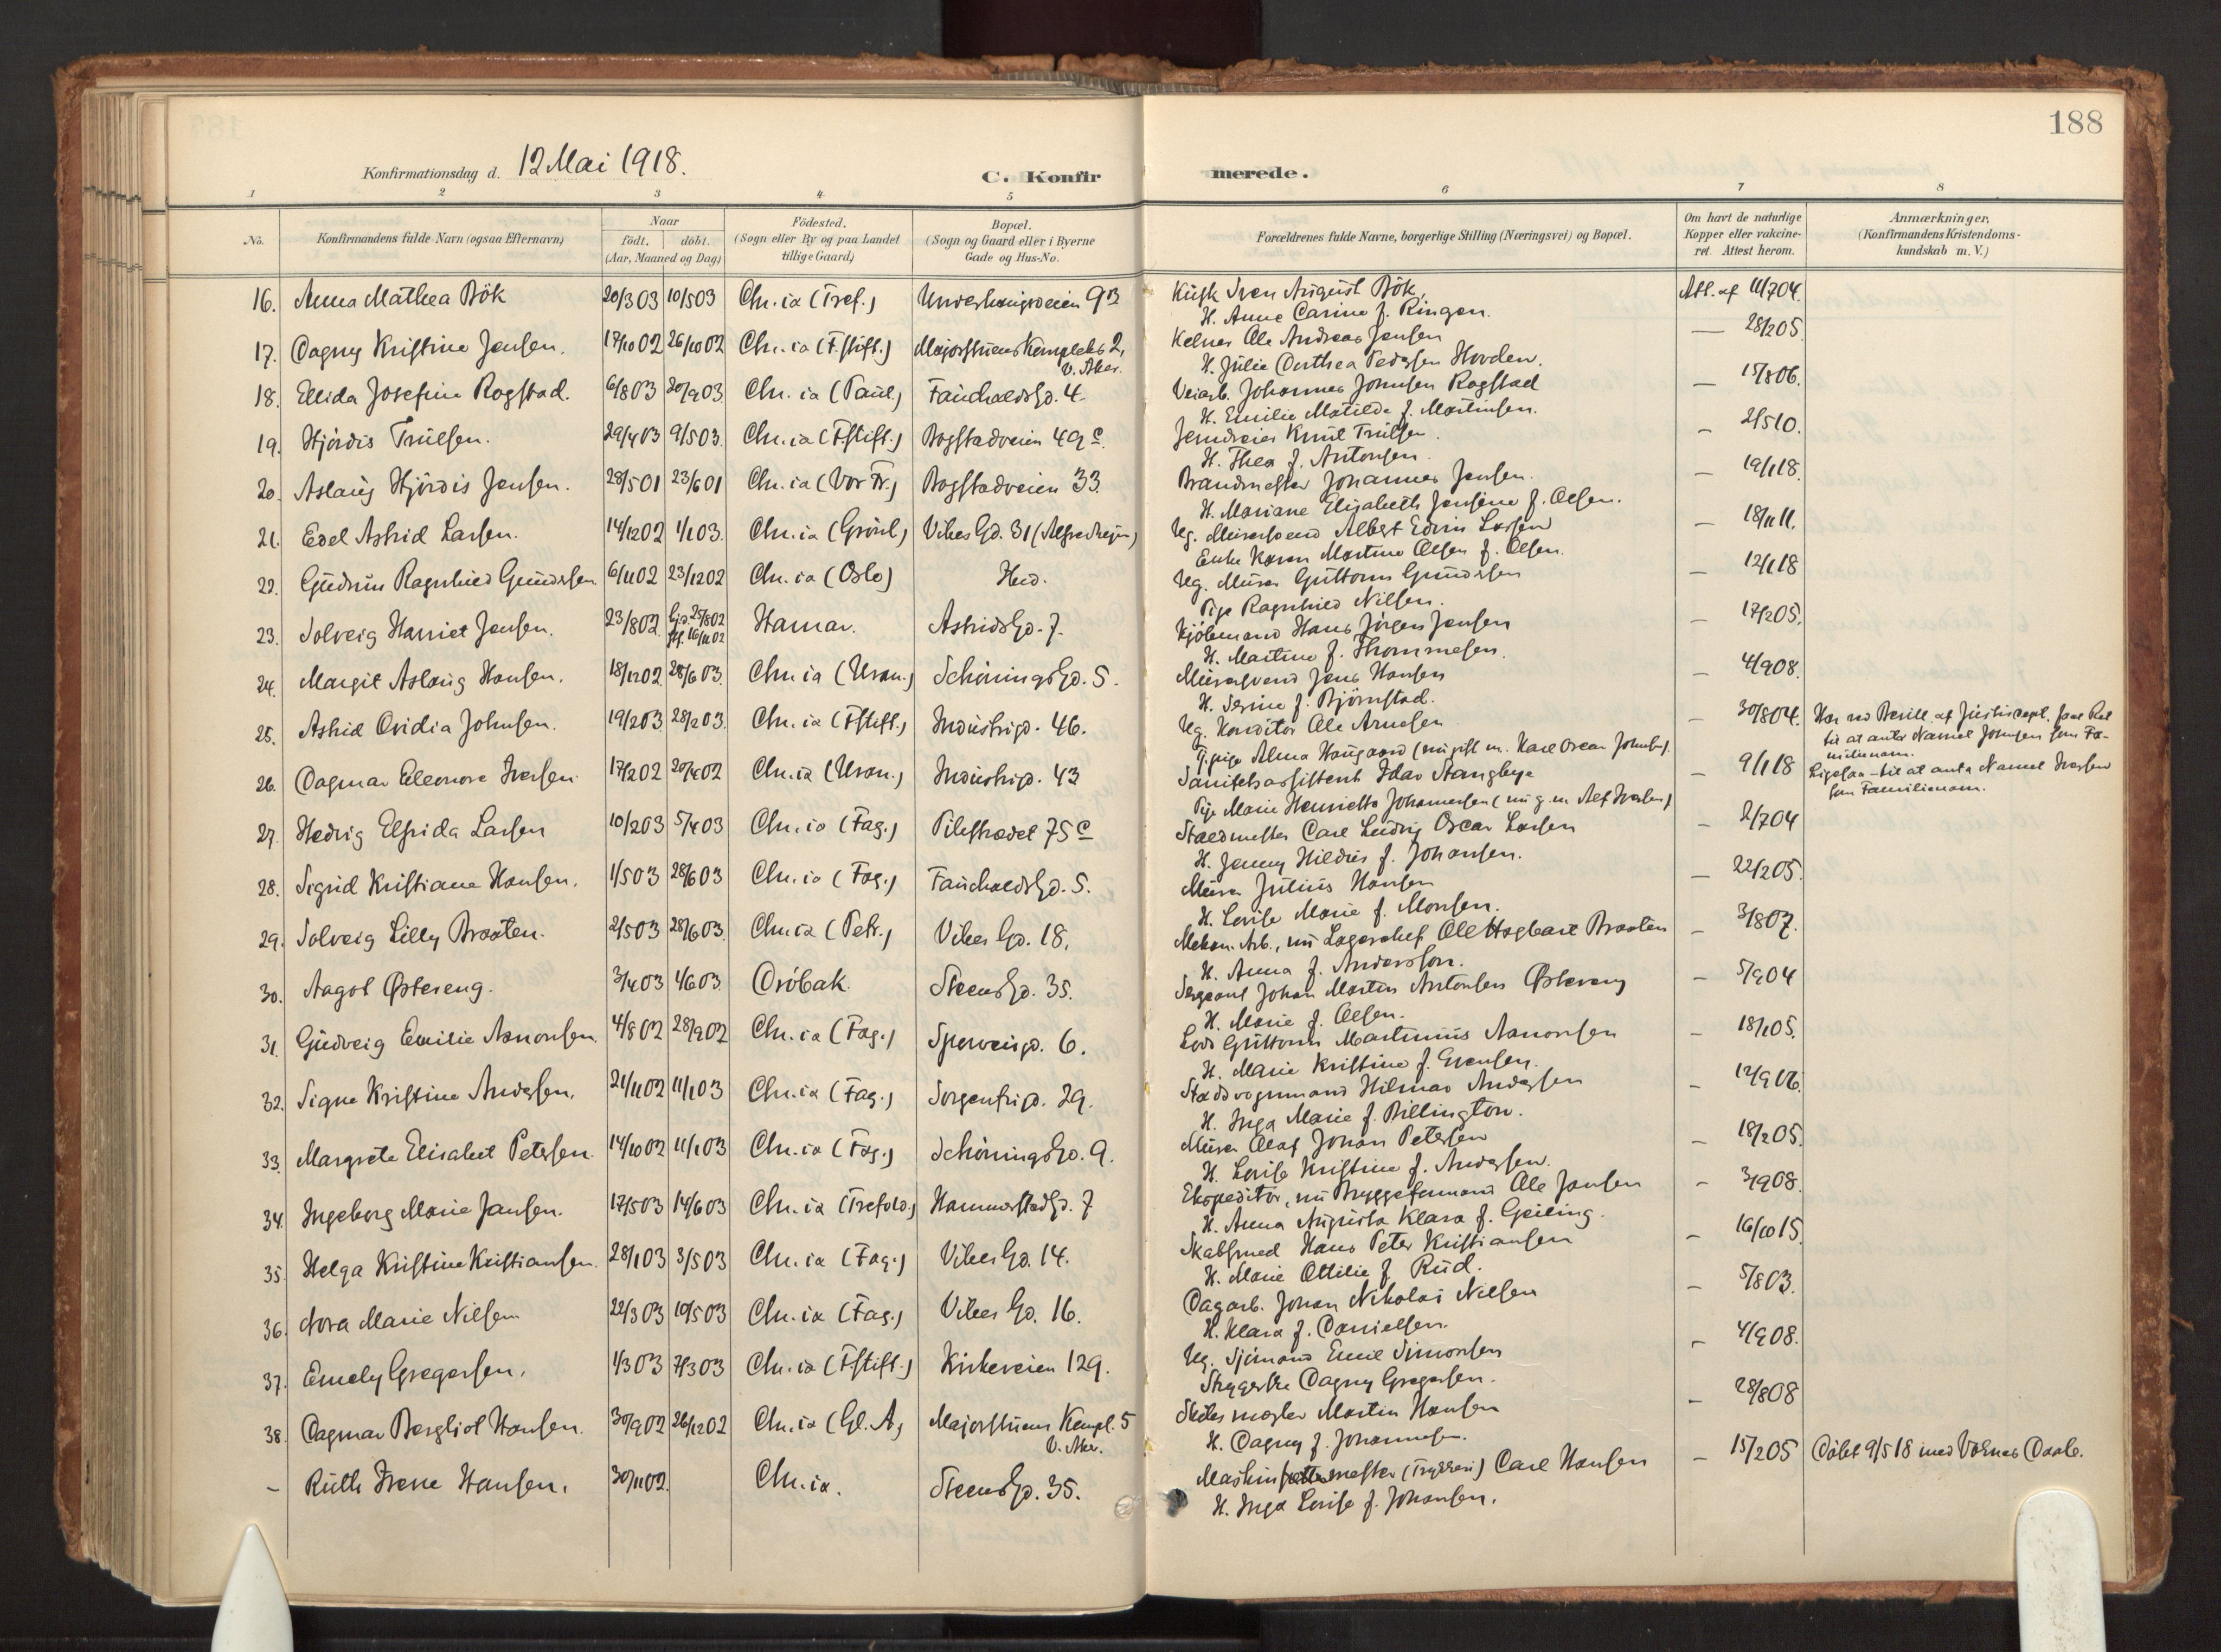 188
Konfirmationsdag d. 12 Mai 1918.
C. Konfirmerede.
1 2 3 4 5 6 7 8
No. Konfirmandens fulde Navn (ogsaa Efternavn) Naar født. døbt. (Aar, Maaned og Dag) Fødested. (Sogn eller By og paa Landet tillige Gaard) Bopæl. (Sogn og Gaard eller i Byerne Gade og Hus-No. Forældrenes fulde Navne, borgerlige Stilling (Næringsvei) og Bopæl. Om havt de naturlige Kopper eller vakcineret. Attest herom. Anmærkninger, (Konfirmandens Kristendomskundskab m. V.)
16. Anna Mathea Bök 20/3 03 10/5 03 Chr.ia (Tref.) Underhaugsveien 9B Kusk Sven August Bök, Att. af 11/7 04.
H. Anne Carine f. Ringen.
17. Dagny Kristine Jensen. 17/10 02 26/10 02 Chr.ia (F.stift.) Majorstuens Kompleks 2, V. Aker. Kelner Ole Andreas Jensen — 28/2 05
H. Julie Dorthea Pedersen Hovden.
18. Ellida Josefine Rogstad. 6/8 03 20/9 03 Chr.ia (Paul.) Fauchaldsgd. 4. Veiarb. Johannes Johnsen Rogstad — 15/8 06.
H. Emilie Matilde f. Martinsen.
19. Hjördis Truelsen. 29/4 03 9/5 03. Chr.ia (F.stift.) Bogstadveien 49c Jerndreier Knut Truelsen. — 2/5 10.
H. Thea f. Antonsen.
20. Aslaug Hjördis Jensen. 28/5 01 23/6 01 Chr.ia (Vor Fr.) Bogstadveien 33. Brandmester Johannes Jensen. — 19/1 18.
H. Mariane Elisabeth Jensine f. Olsen.
21. Edel Astrid Larsen. 14/12 02 1/1 03. Chr.ia (Grönl.) Vibes Gd. 31 Ug. Murersvend Albert Edvin Larsen — 18/11 11.
Enke Karen Martine Olsen f. Olsen.
22. Gudrun Ragnhild Gundersen 6/11 02 23/12 02 Chr.ia (Oslo) Ug. Murer Guttorm Gundersen — 12/1 18
Pige Ragnhild Nilsen.
23. Solveig Harriet Jensen. 23/8 02 hj.d. 25/8 02 16/11 02 Hamar. Astridsgd. 7. Kjöbmand Hans Jörgen Jensen — 17/2 05.
H. Martine f. Thommesen.
24. Margit Aslaug Hansen. 18/12 02 28/6 03. Chr.ia (Uran.) Schöningsgd. 5. Murersvend Jens Hansen — 4/9 08.
H. Serine f. Björnstad.
25. Astrid Ovidia Johnsen. 19/2 03 28/2 03. Chr.ia (F.stift.) Industrigd. 46. Ug. Konditor Ole Arnesen — 30/8 04. Har ved Bevill. af Justisdept. faaet Ret til at anta Navnet Johnsen som Familienavn.
Pige Alma Haugaard (nu gift m. Karl Oscar Johnsen).
26. Dagmar Eleonore Iversen. 17/2 02 20/4 02 Chr.ia (Uran.) Industrigd. 43 Sanitetsassistent Idar Stangbye — 9/1 18 Ligesaa – til at anta Navnet Iversen som Familienavn.
Pige Marie Henriette Johannesen (nu g. m. Alf Iversen)
27. Hedvig Elfrida Larsen 10/2 03 5/4 03 Chr.ia (Fag.) Pilestrædet 75c Staldmester Carl Ludvig Oscar Larsen — 2/7 04
H. Jenny Hildur f. Johansen.
28. Sigrid Kristiane Hansen. 1/5 03 28/6 03 Chr.ia (Fag.) Fauchaldsgd. 5. Murer Julius Hansen — 22/2 05.
H. Lovise Marie f. Monsen.
29. Solveig Lilly Braaten. 2/5 03 28/6 03. Chr.ia (Petr.) Vibes Gd. 18. Mekan. Arb., nu Lagerchef Ole Hagbart Braaten — 3/8 07.
H. Anna f. Andersson.
30. Aagot Østereng. 3/4 03 1/6 03. Dröbak. Steensgd. 35. Sergeant Johan Martin Antonsen Østereng — 5/9 04
H. Marie f. Olsen.
31. Gudveig Emilie Aanonsen. 4/8 02 28/9 02 Chr.ia (Fag.) Sporveisgd. 6. Lods Guttorm Martinius Aanonsen — 18/1 05.
H. Marie Kristine f. Evensen.
32. Signe Kristine Andersen. 21/11 02 11/1 03 Chr.ia (Fag.) Sorgenfrigd. 29. Stadsvognmand Hilmar Andersen — 12/9 06.
H. Inga Marie f. Billington.
33. Margrete Elisabet Petersen. 14/10 02 11/1 03 Chr.ia (Fag.) Schöningsgd. 9. Murer Olaf Johan Petersen — 18/2 05.
H. Lovise Kristine f. Andersen.
34. Ingeborg Marie Jansen. 17/5 03 14/6 03 Chr.ia (Trefold.) Hammerstadsgd. 7 Ekspeditör, nu Bryggeformand Ole Jansen — 3/9 08.
H. Anna Augusta Klara f. Geiling.
35. Helga Kristine Kristiansen. 28/1 03 3/5 03 Chr.ia (Fag.) Vibes Gd. 14. Skabsmed Hans Peter Kristiansen — 16/10 15.
H. Marie Ottilie f. Rud.
36. Nora Marie Nilsen 22/3 03 10/5 03 Chr.ia (Fag.) Vibes Gd. 16. Dagarb. Johan Nikolai Nilsen — 5/8 03.
H. Klara f. Danielsen.
37. Emely Gregersen. 1/3 03 7/3 03 Chr.ia (F.stift.) Kirkeveien 129. Ug. Sjömand Emil Simonsen — 4/9 08.
Strygerske Dagny Gregersen.
38. Dagmar Bergliot Hansen. 30/9 02 26/12 02 Chr.ia (Gl. A.) Majorstuens Kompl. 5 V. Aker. Skibsmægler Martin Hansen — 28/8 08
H. Dagny f. Johannesen.
– Ruth Irene Hansen. 30/11 02. Chr.ia. Steensgd. 35. Maskinmester (Trykkeri) Carl Hansen — 15/2 05 Döbt 9/5 18 med Voksnes Daab.
H. Inga Lovise f. Johansen.